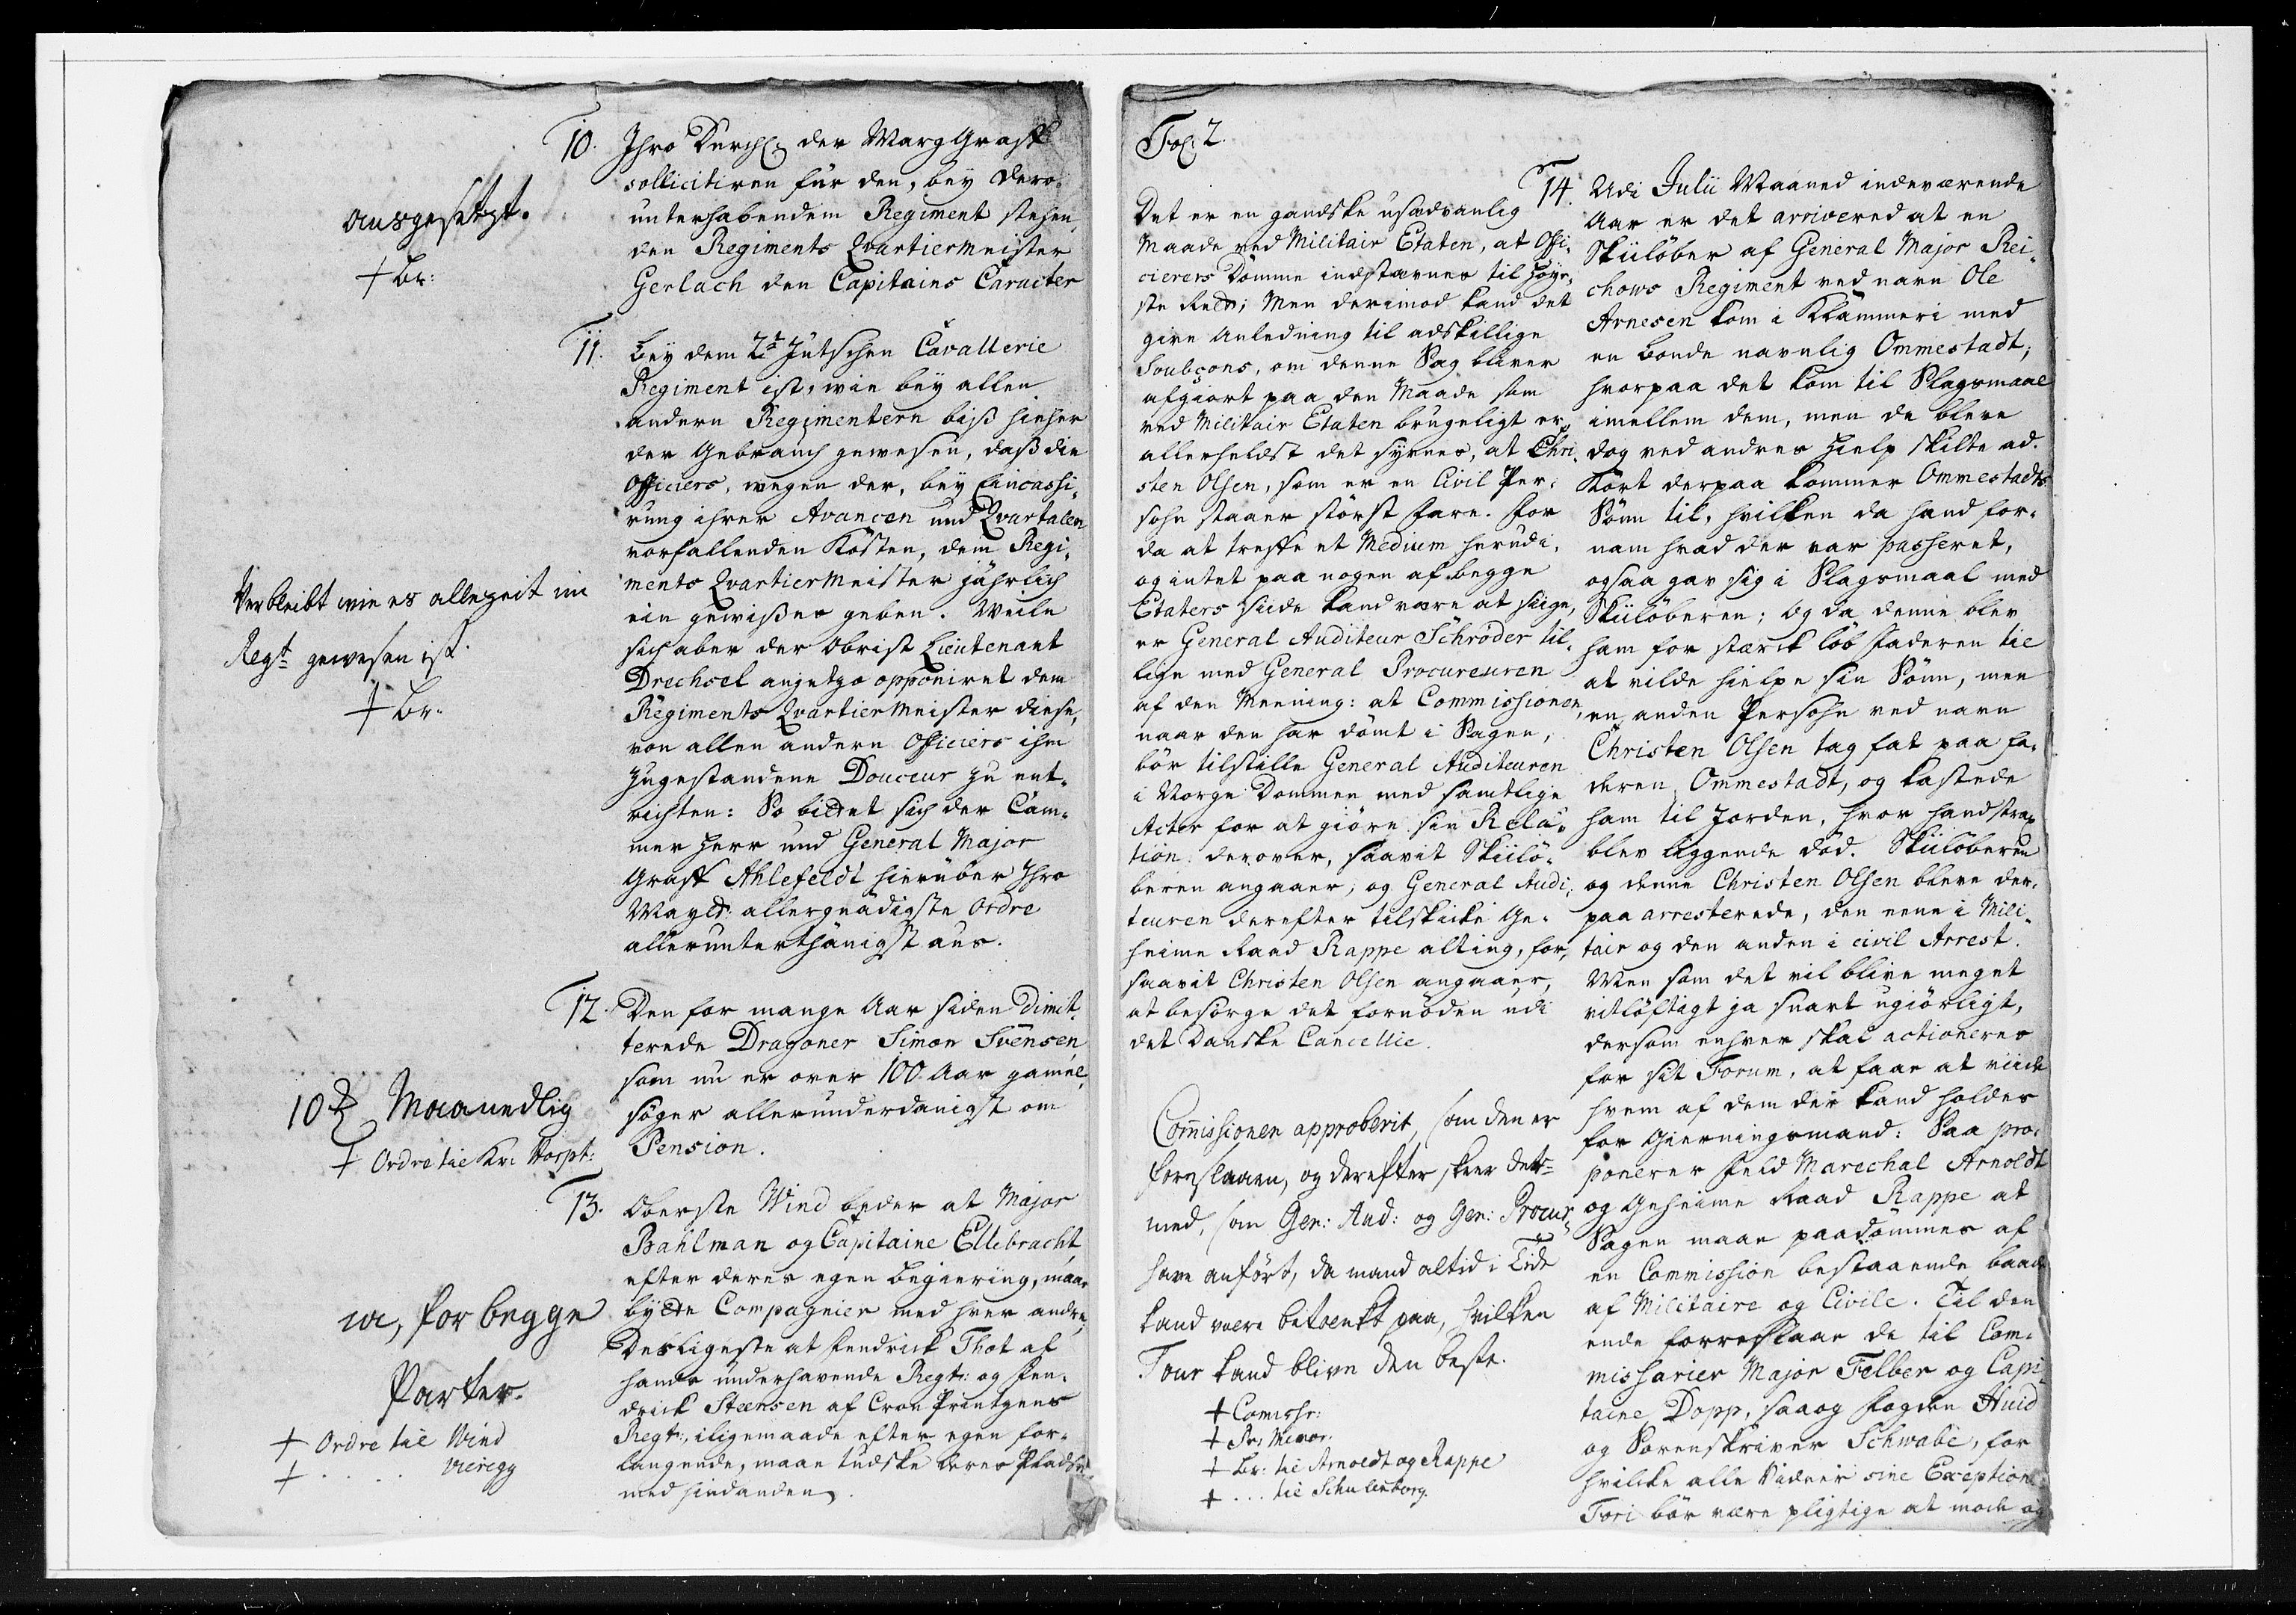 10. Ihro Durchl: der Marg Graff
sollicitiren für den, bey dero
unterhabendem Regiment stehen,
den Regiments Qvartiermeister
Gerlach den Capitains Caracter
ausgesetzt.
+ Br:
11. Bey dem 2t Jütschen Cavallerie
Regiment ist, wie bey allen
andern Regimentern biß hieher
der Gebrauch gewesen, daß die
Officiers, wegen der, bey Eincassi,
rung ihrer Avancen und Qvartalen
vorfallenden Kosten, dem Regi,
ments Qvartiermeister jährlich
ein gewißes geben. Weile
sich aber der Obrist Lieutenant
Drechsel anjetzo opponiret dem
Regiments Qvartiermeister diese,
von allen andern Officiers ihm
zugestandene Douceur zu ent,
richten: So bittet sich der Cam,
mer Herr und General Major
Graff Ahlefeldt hierüber Ihro
Maytt: allergnädigste Ordre
allerunterthänigst aus.
Verbleibt wie es allezeit im
Regt gewesen ist.
+ Br.
12. Den for mange Aar siden dimit,
terede Dragoner Simon Svensen,
som nu er over 100 Aar gamel,
söger allerunderdanigst om
Pension.
10 Maanedlig
+ Ordre til Kr: Norpt:
13. Oberste Wind beder at Major
Bahlman og Capitaine Ellebracht,
efter deres egen begiering, maae
bytte Compagnier med hver andre,
Desligeste at Fendrick Thot af
hands underhavende Regt: og Fen,
drick Steensen af Cron Printzens
Regt:, iligemaade efter egen for,
langende, maae tudske deres Pladse
med hindanden.
ja, for begge
Parter.
+ Ordre til Wind
+ . . . . . Vieregg
Fol: 2.
Det er en gandske usædvanlig
Maade ved Militair Etaten, at Offi,
cierers Domme indstævnes til Höye,
ste Rett; Men derimod kand det
give Anledning til adskillige
Soubçons, om denne Sag bliver
afgiort paa den Maade som
ved Militair Etaten brugeligt er,
allerheldst det synes, at Chri,
sten Olsen, som er en Civil Per,
sohn staaer störst fare. For
da at treffe et Medium herudi,
og intet paa nogen af begge
Etaters siide kand være at siige,
er General Auditeur Schröder til,
lige med General Procureuren
af den Meening: at Commissionen,
naar den har dömt i Sagen,
bör tilstille General Auditeuren
i Norge Dommen med samtlige
Acter for at giöre sin Rela,
tion derover, saavit Skiilö,
beren angaaer, og General Audi,
teuren derefter tilskicke Ge,
heime Raad Rappe alting, for,
saavit Christen Olsen angaaer,
at besörge det fornöden udi
det Danske Cancellie.
Commissionen approberit, som den er
foreslaaen, og derefter skeer det
med, som Gen: Aud: og Gen: Procur
have anfört, da mand altid i Tide
kand være betænkt paa, hvilken
Tour kand blive den beste.
+ Comiss:
+ Pr: Memor.
+ Br: til Arnoldt og Rappe
+ . . . til Schulenborg.
14. Udi Julii Maaned indeværende
Aar er det arrivered at en
Skiilöber af General Major Rei,
chows Regiment ved navn Ole
Arnesen kom i Klammeri med
en bonde navnlig Ommestadt;
hvorpaa det kom til Slagsmaal
imellem dem, men de bleve
dog ved andres hielp skilte ad.
Kort derpaa kommer Ommestadts
Sönn til, hvilken da hand for,
nam hvad der var passeret,
ogsaa gav sig i Slagsmaal med
Skiilöberen; Og da denne blev
ham for stærck löb Faderen til
at vilde hielpe sin Sönn, men
en anden Persohn ved navn
Christen Olsen tog fat paa Fa,
deren Ommestadt, og kastede
ham til Jorden, hvor hand strax
blev liggende död. Skiilöberen
og denne Christen Olsen bleve der,
paa arresterede, den eene i Mili,
tair og den anden i civil Arrest.
Men som det vil blive meget
vitlöftigt ja snart ugiörligt,
dersom enhver skal actioneres
for sit Forum, at faae at viide
hvem af dem der kand holdes
for Gierningsmand: Saa pro,
ponerer Feld Marechal Arnoldt
og Geheime Raad Rappe at
Sagen maae paadömmes af
en Commission bestaaende baade
af Militaire og Civile. Til den
ende foreslaae de til Com,
missarier Major Felber og Capi,
taine Dopp, saa og Fogden Huid
og Sorenskriver Schwabe, for
hvilcke alle Vidner sine Exceptione
Fori bör være pligtige at möde og